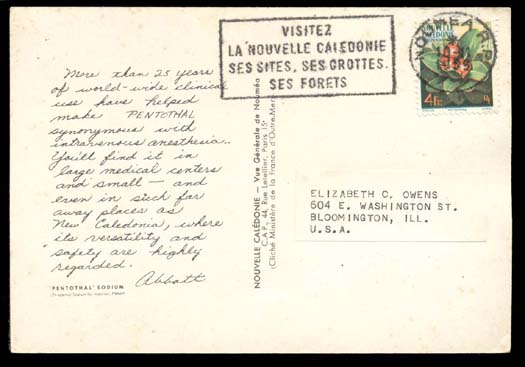 VISITEZ
LA NOUVELLE CALEDONIE
SES SITES, SES GROTTES.
SES FORETS
NOUMEA R.P.
1959
NOUVELLE CALEDONIE
4F
More than 25 years
of world-wide clinical
use have helped
make PENTOTHAL
synonymous with
intravenous anesthesia..
You'll find it in
large medical centers
and small — and
even in such far
away places as
New Caledonia, where
its versatility and
safety are highly
regarded.
Abbott
'PENTOTHAL' SODIUM
NOUVELLE CALÉDONIE – Vue Générale de Nouméa
C.A.P., 44, Rue Letellier, Paris 15e
(Cliché Ministère de la France d'Outre-Mer)
ELIZABETH C. OWENS
604 E. WASHINGTON ST.
BLOOMINGTON, ILL.
U.S.A.